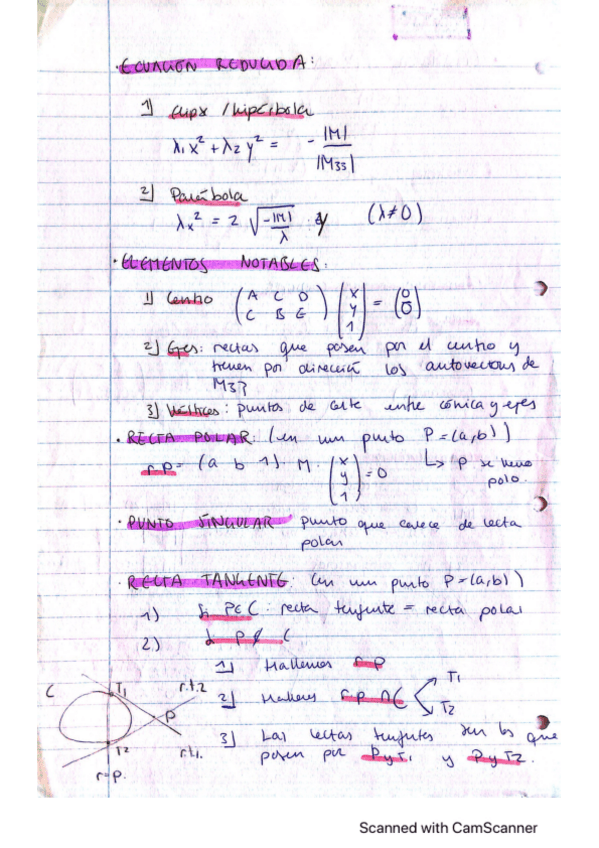 · ECUACIÓN REDUCIDA:
1) Elipse / hipérbola
λ₁x² + λ₂y² = - |M| / |M33|
2) Parábola
λx² = 2 √(-|M| / λ) y (λ≠0)
· ELEMENTOS NOTABLES:
1) Centro (A C D / C B E) (x / y / 1) = (0 / 0)
2) Ejes: rectas que pasen por el centro y
tienen por dirección los autovectores de
M33
3) Vértices: puntos de corte entre cónica y ejes
· RECTA POLAR: (en un punto P=(a,b))
r.p = (a b 1) · M · (x / y / 1) = 0 ↳ P se llama
polo.
· PUNTO SINGULAR punto que carece de recta
polar
· RECTA TANGENTE: (en un punto P=(a,b))
1) Si P∈C: recta tangente = recta polar
2) Si P∉C
1) Hallamos r.p
2) Hallamos r.p ∩ C < T1 T2
3) Las rectas tangentes son las que
pasen por P y T1 y P y T2.
C T1 r.t.2
P
T2 r.t1.
r.p.
Scanned with CamScanner